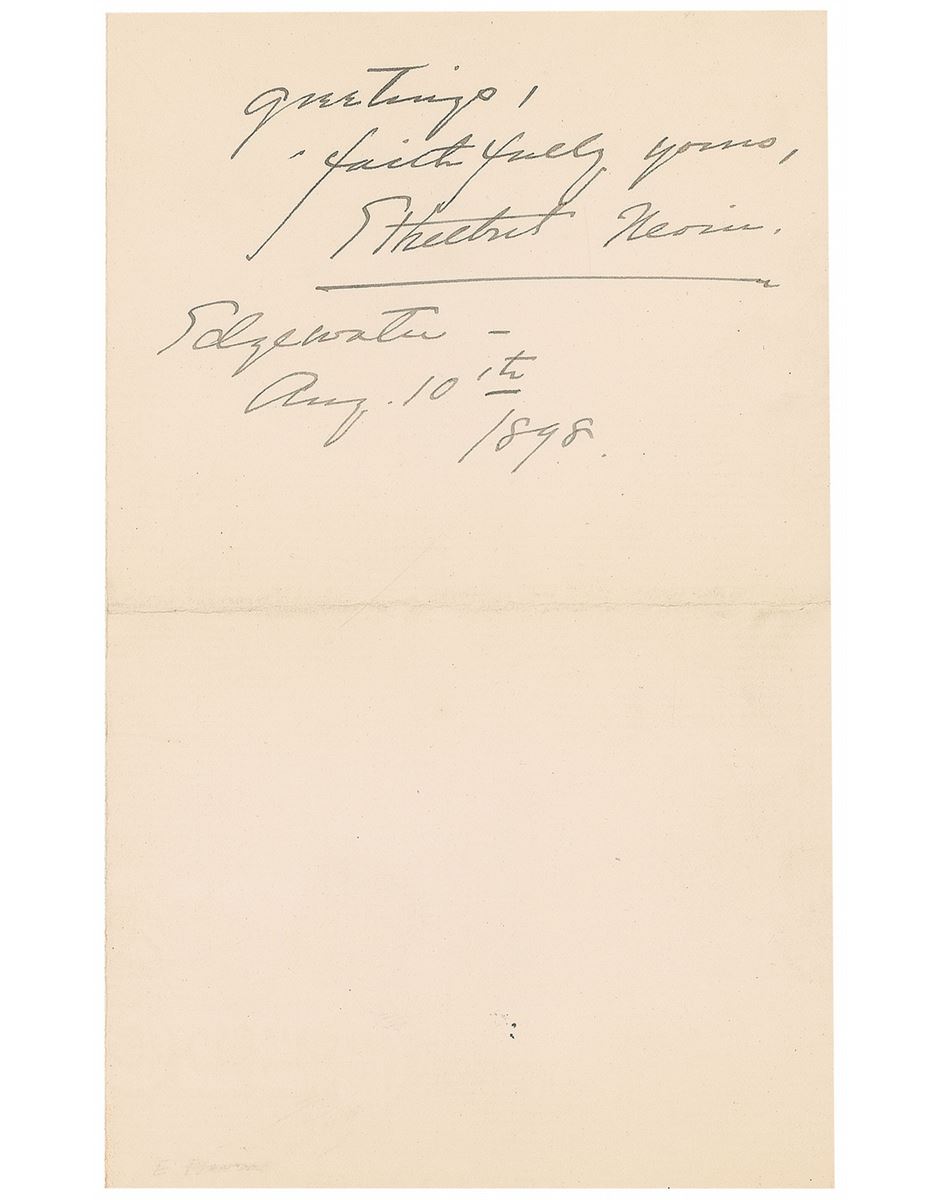 greetings,
faithfully yours,
Ethelbert Nevin.
Edgewater –
Aug. 10th
1898.